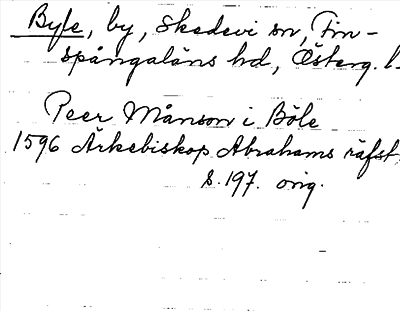 Byle, by, Skedevi sn, Fin-
spångaläns hd, Österg. l.
Peer Månson i Böle
1596 Ärkebiskop Abrahams räfst
s. 197. orig.